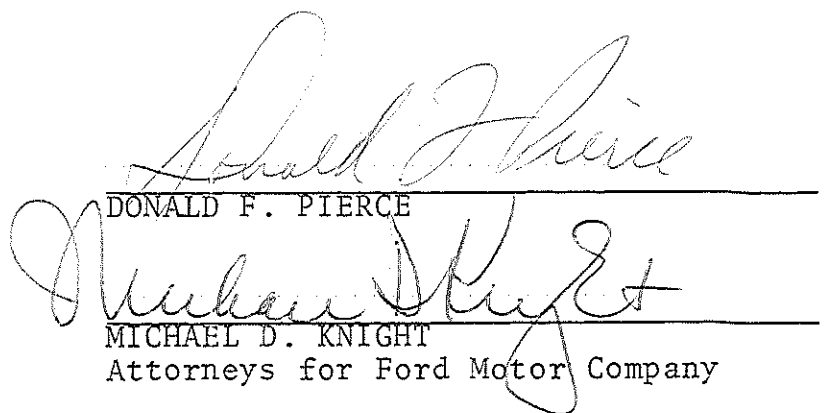 Donald F Pierce
DONALD F. PIERCE
Michael D Knight
MICHAEL D. KNIGHT
Attorneys for Ford Motor Company